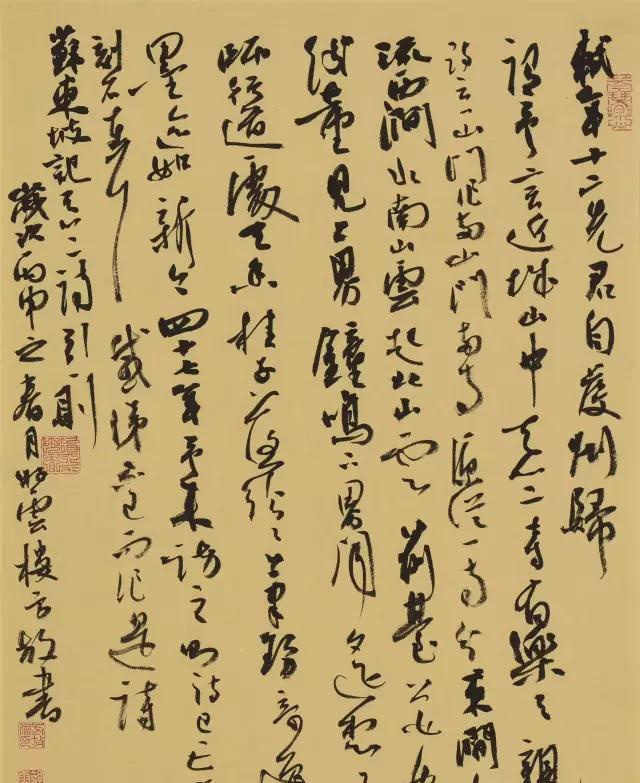 軾年十二先君自虔州歸
謂予言近城山中天竺寺有樂天親
詩云一山門作兩山門兩寺原從一寺分東澗
流西澗水南山雲起北山雲前臺花發
後臺見上界鐘鳴下界聞遙想
師行道處天香桂子落紛紛筆勢奇逸
墨跡如新今四十七年予來訪之則詩已亡
刻石存耳感涕不已而作是詩
蘇東坡記天竺詩引一則
歲次丙申之春月於雲樓方放書